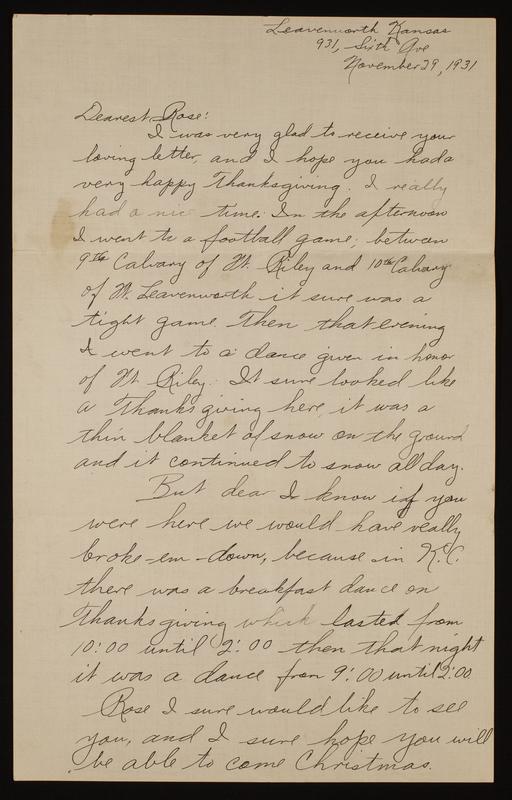 Leavenworth Kansas
931, Sixth Ave
November 29, 1931
Dearest Rose:
I was very glad to receive your
loving letter, and I hope you had a
very happy Thanksgiving. I really
had a nice time: In the afternoon
I went to a football game; between
9th Calvary of Ft. Riley and 10th Calvary
of Ft. Leavenworth it sure was a
tight game. Then that evening
I went to a dance given in honor
of Ft Riley. It sure looked like
a Thanksgiving here, it was a
thin blanket of snow on the ground
and it continued to snow all day.
But dear I know if you
were here we would have really
broke-em-down, because in K.C.
there was a breakfast dance on
Thanksgiving which lasted from
10:00 until 2:00 then that night
it was a dance from 9:00 until 2:00
Rose I sure would like to see
you, and I sure hope you will
be able to come Christmas.